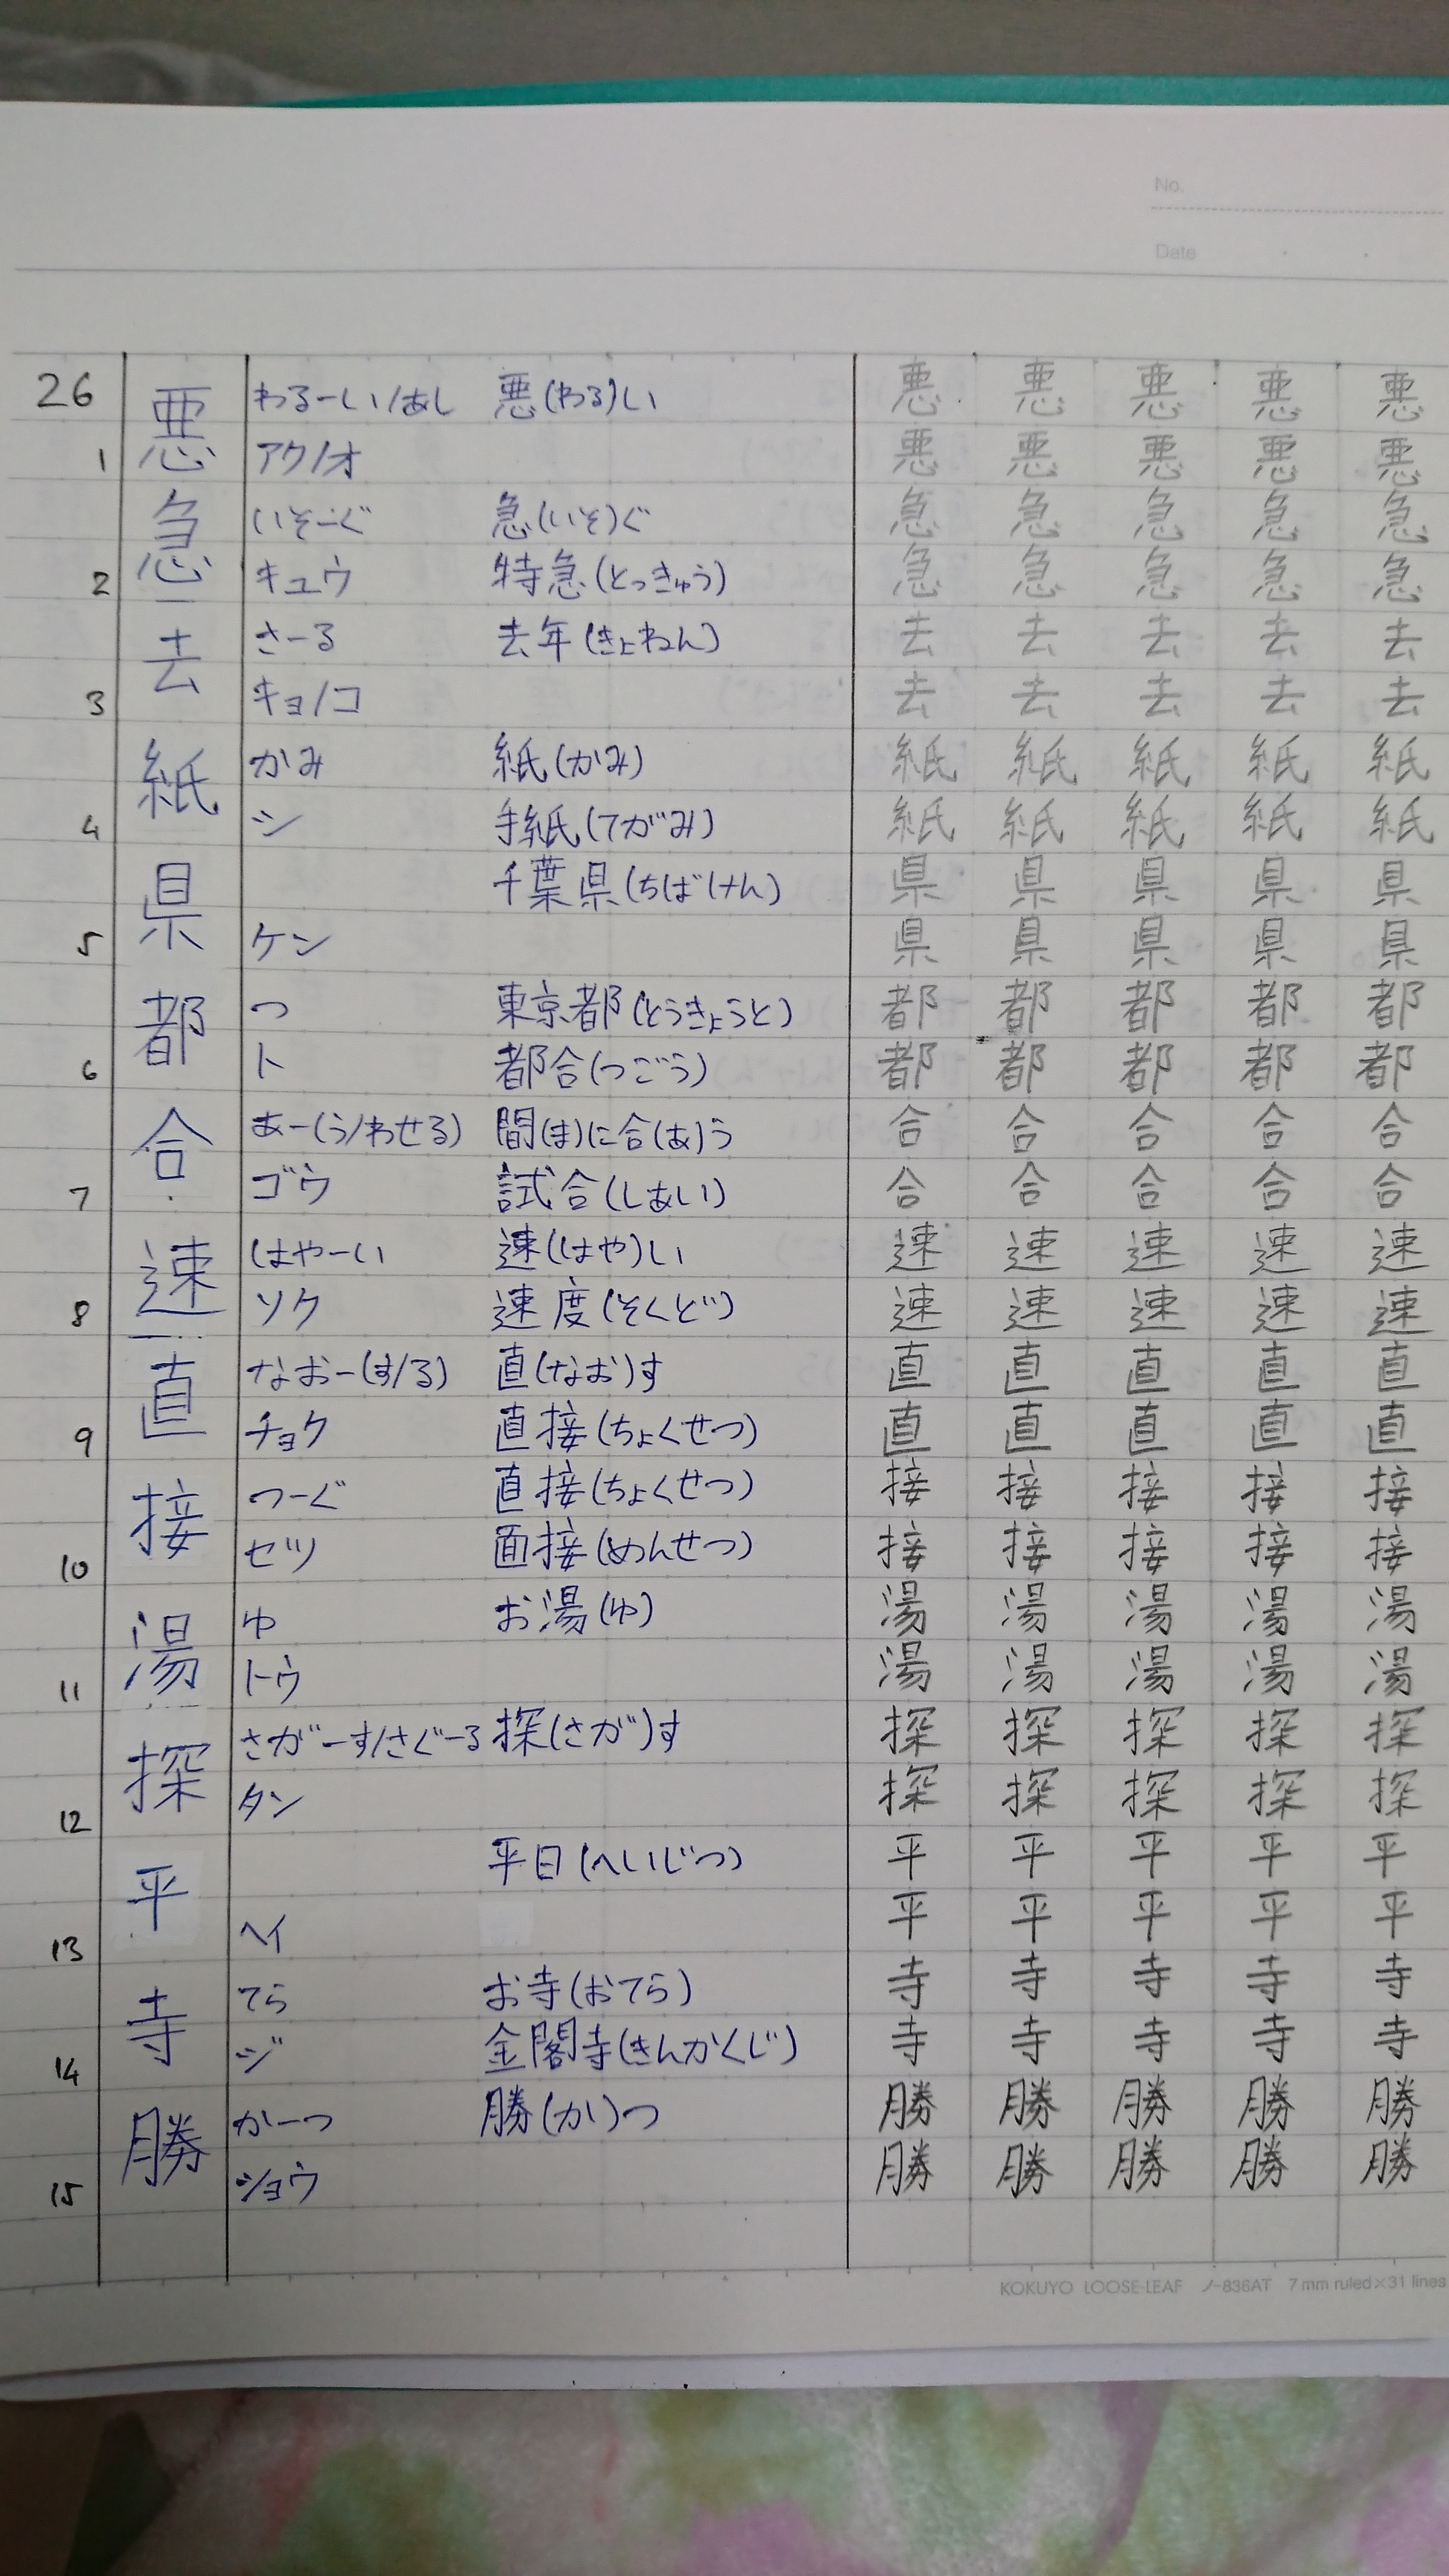 No.
Date
26 悪 わるーい/あし 悪(わる)い 悪 悪 悪 悪 悪
1 アク/オ 悪 悪 悪 悪 悪
急 いそーぐ 急(いそ)ぐ 急 急 急 急 急
2 キュウ 特急(とっきゅう) 急 急 急 急 急
去 さーる 去年(きょねん) 去 去 去 去 去
3 キョ/コ 去 去 去 去 去
紙 かみ 紙(かみ) 紙 紙 紙 紙 紙
4 シ 手紙(てがみ) 紙 紙 紙 紙 紙
県 千葉県(ちばけん) 県 県 県 県 県
5 ケン 県 県 県 県 県
都 つ 東京都(とうきょうと) 都 都 都 都 都
6 ト 都合(つごう) 都 都 都 都 都
合 あー(う/わせる) 間(ま)に合(あ)う 合 合 合 合 合
7 ゴウ 試合(しあい) 合 合 合 合 合
速 はやーい 速(はや)い 速 速 速 速 速
8 ソク 速度(そくど) 速 速 速 速 速
直 なおー(す/る) 直(なお)す 直 直 直 直 直
9 チョク 直接(ちょくせつ) 直 直 直 直 直
接 つーぐ 直接(ちょくせつ) 接 接 接 接 接
10 セツ 面接(めんせつ) 接 接 接 接 接
湯 ゆ お湯(ゆ) 湯 湯 湯 湯 湯
11 トウ 湯 湯 湯 湯 湯
探 さがーす/さぐーる 探(さが)す 探 探 探 探 探
12 タン 探 探 探 探 探
平 平日(へいじつ) 平 平 平 平 平
13 ヘイ 平 平 平 平 平
寺 てら お寺(おてら) 寺 寺 寺 寺 寺
14 ジ 金閣寺(きんかくじ) 寺 寺 寺 寺 寺
勝 かーつ 勝(か)つ 勝 勝 勝 勝 勝
15 ショウ 勝 勝 勝 勝 勝
KOKUYO LOOSE-LEAF ノ-836AT 7 mm ruled×31 lines